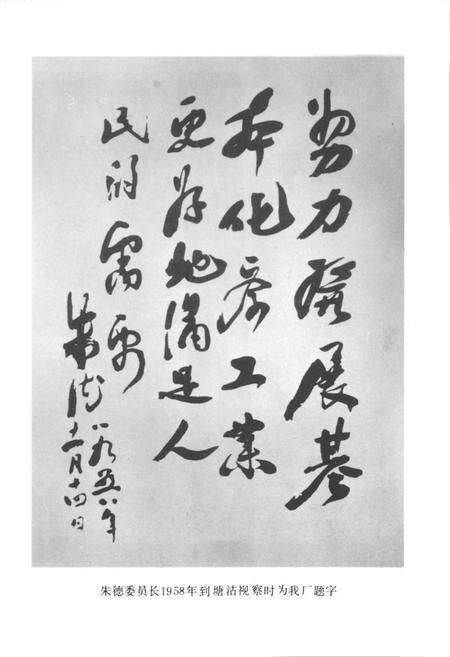 努力發展基
本化學工業
更好地满足人
民的需要
朱德
一九五八年
十一月十四日
朱德委员长1958年到塘沽视察时为我厂题字